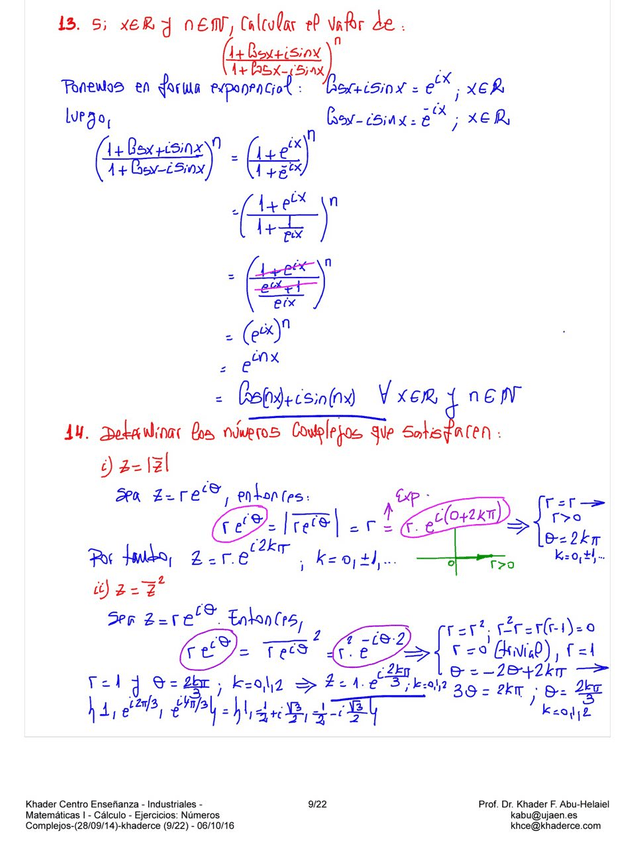 13. Si x∈ℝ y n∈ℕ, Calcular el valor de:
((1+Cosx+isinx)/(1+Cosx-isinx))^n
Ponemos en forma exponencial: Cosx+isinx = e^{ix} ; x∈ℝ
Luego, Cosx-isinx = e^{-ix} ; x∈ℝ
((1+Cosx+isinx)/(1+Cosx-isinx))^n = ((1+e^{ix})/(1+e^{-ix}))^n
= ((1+e^{ix})/(1+1/e^{ix}))^n
= ((1+e^{ix})/((e^{ix}+1)/e^{ix}))^n
= (e^{ix})^n
= e^{inx}
= Cos(nx)+isin(nx) ∀ x∈ℝ y n∈ℕ
14. Determinar los números complejos que satisfacen:
i) z=|z̄|
Sea z=re^{iθ}, entonces:
re^{iθ} = |\overline{re^{iθ}}| = r = r.e^{i(0+2kπ)} ⇒ { r=r →
Exp.
r>0
θ=2kπ
k=0,±1,...
0 r>0
Por tanto, z=r.e^{i2kπ} ; k=0,±1,...
ii) z=z̄²
Sea z=re^{iθ}. Entonces,
re^{iθ} = \overline{re^{iθ}}² = r².e^{-iθ·2} ⇒ { r=r² ; r²-r=r(r-1)=0
r=0 (trivial), r=1
θ=-2θ+2kπ →
r=1 y θ=2kπ/3 ; k=0,1,2 ⇒ z=1.e^{i2kπ/3} ; k=0,1,2 3θ=2kπ ; θ=2kπ/3
k=0,1,2
{1, e^{i2π/3}, e^{i4π/3}} = {1, -1/2+i√3/2, -1/2-i√3/2}
Khader Centro Enseñanza - Industriales - 9/22 Prof. Dr. Khader F. Abu-Helaiel
Matemáticas I - Cálculo - Ejercicios: Números kabu@ujaen.es
Complejos-(28/09/14)-khaderce (9/22) - 06/10/16 khce@khaderce.com